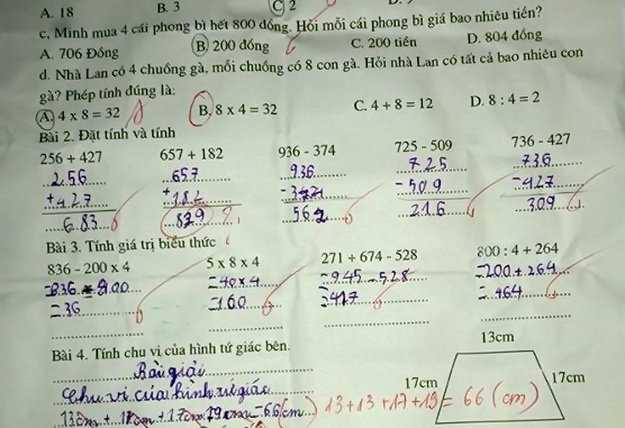 A. 18 B. 3 C 2
c. Minh mua 4 cái phong bì hết 800 đồng. Hỏi mỗi cái phong bì giá bao nhiêu tiền?
A. 706 Đồng B. 200 đồng C. 200 tiền D. 804 đồng
d. Nhà Lan có 4 chuồng gà, mỗi chuồng có 8 con gà. Hỏi nhà Lan có tất cả bao nhiêu con
gà? Phép tính đúng là:
A. 4 x 8 = 32 B. 8 x 4 = 32 C. 4 + 8 = 12 D. 8 : 4 = 2
Bài 2. Đặt tính và tính
256 + 427 657 + 182 936 - 374 725 - 509 736 - 427
256 657 936 725 736
+ 427 + 182 - 374 - 509 - 427
683 839 562 216 309
Bài 3. Tính giá trị biểu thức
836 - 200 x 4 5 x 8 x 4 271 + 674 - 528 800 : 4 + 264
= 836 - 800 = 40 x 4 = 945 - 528 = 200 + 264
= 36 = 160 = 417 = 464
Bài 4. Tính chu vi của hình tứ giác bên.
13cm
Bài giải
17cm 17cm
Chu vi của hình tứ giác
13cm + 17cm + 17cm = 66cm 13 + 13 + 17 + 19 = 66 (cm)